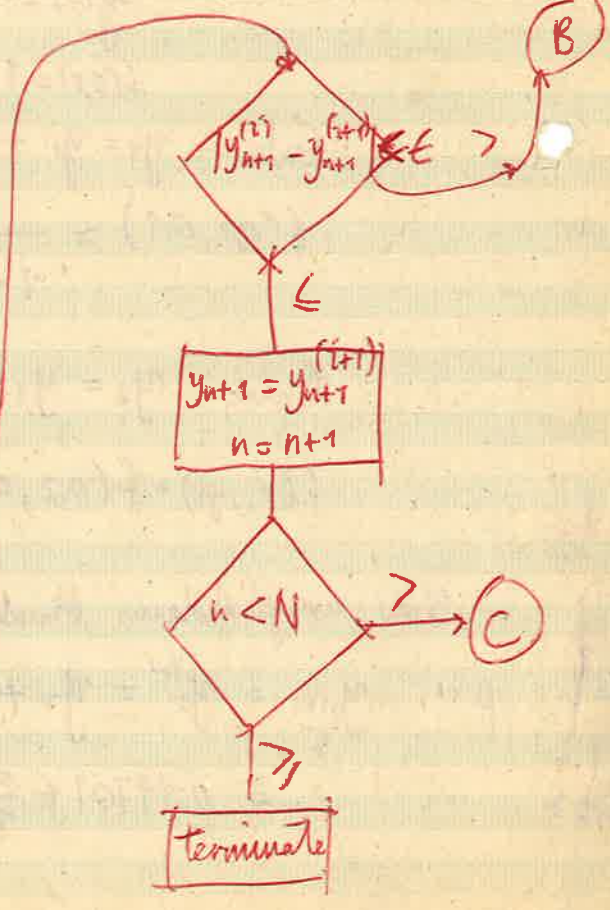 B
|y_{n+1}^{(i)} - y_{n+1}^{(i+1)}| < ε >
≤
y_{n+1} = y_{n+1}^{(i+1)}
n = n+1
n < N > C
≥
terminate